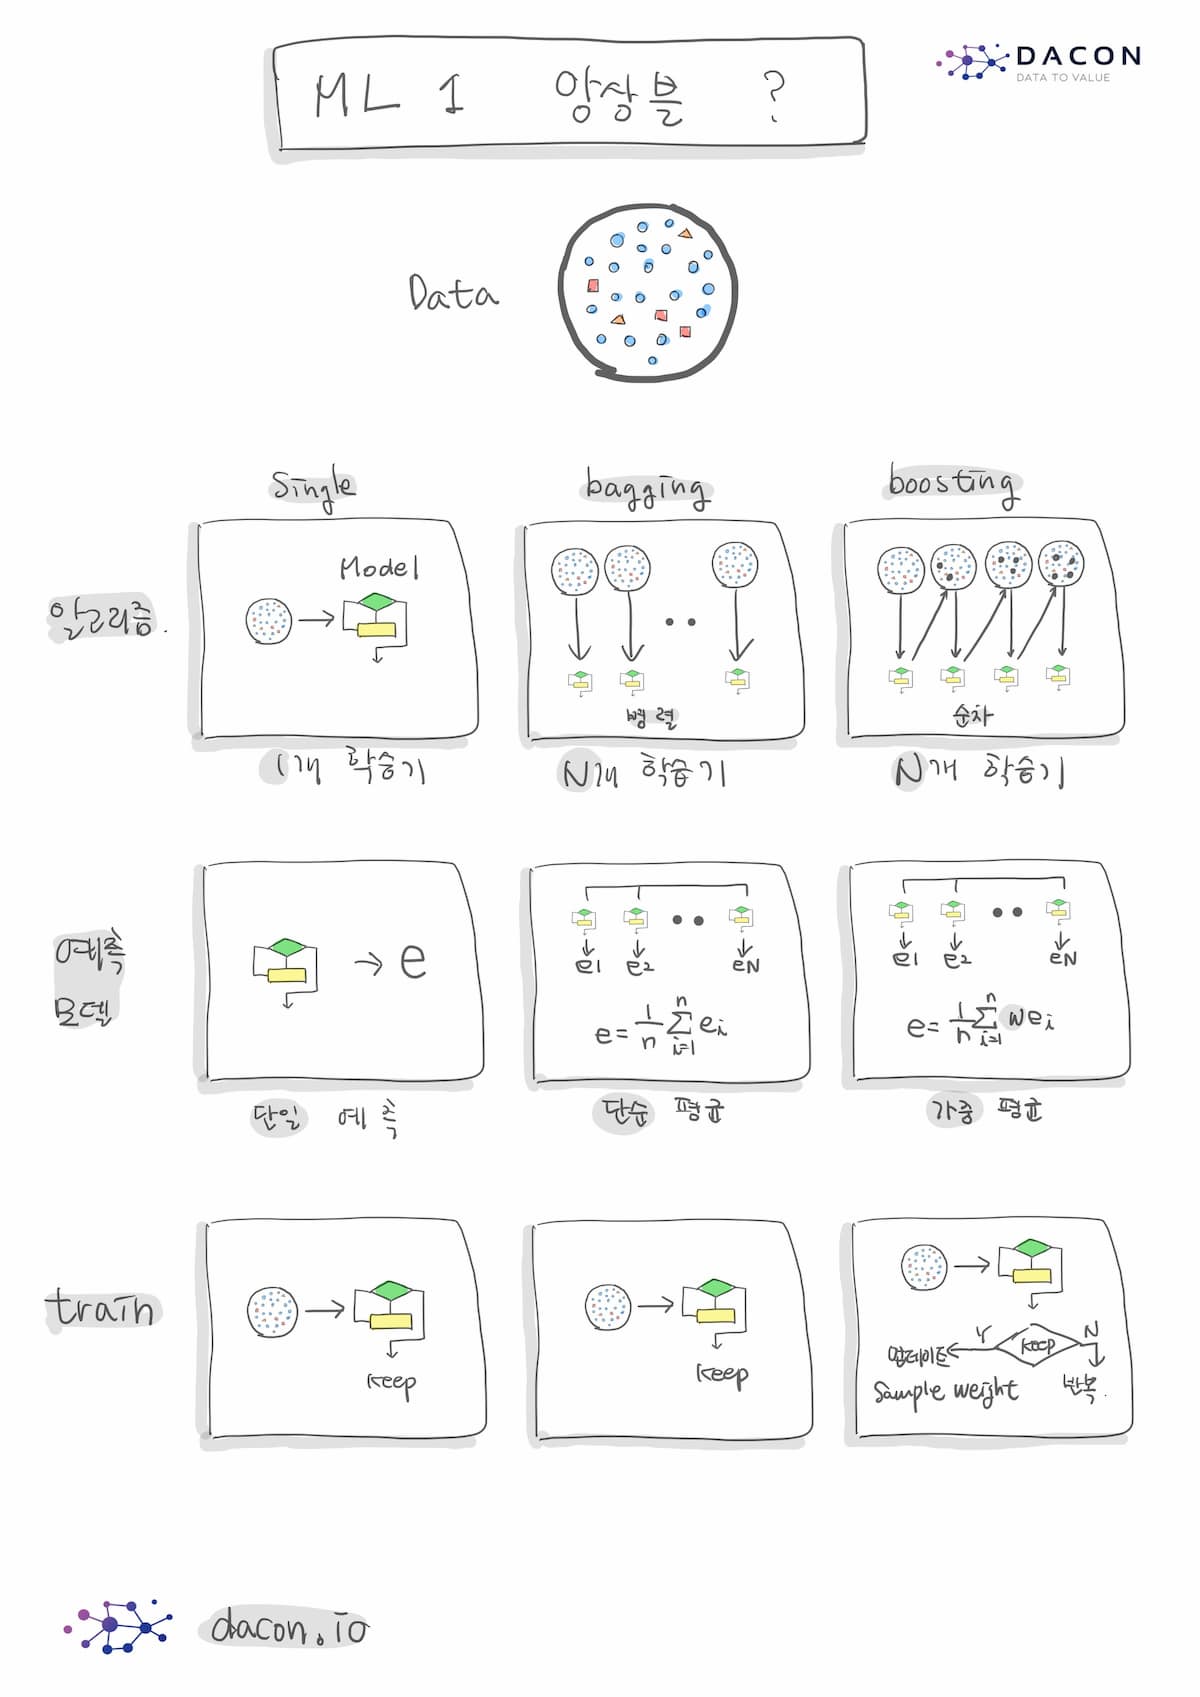 ML 1 앙상블 ?
DACON
DATA TO VALUE
Data
Single
bagging
boosting
알고리즘.
Model
병렬
순차
1개 학습기
N개 학습기
N개 학습기
예측
모델
→ e
e1 e2 eN
e = 1/n ∑ i=1 n ei
e1 e2 eN
e = 1/n ∑ i=1 n wei
단일 예측
단순 평균
가중 평균
train
Keep
Keep
Y Keep N
업데이트
Sample weight
반복.
dacon.io